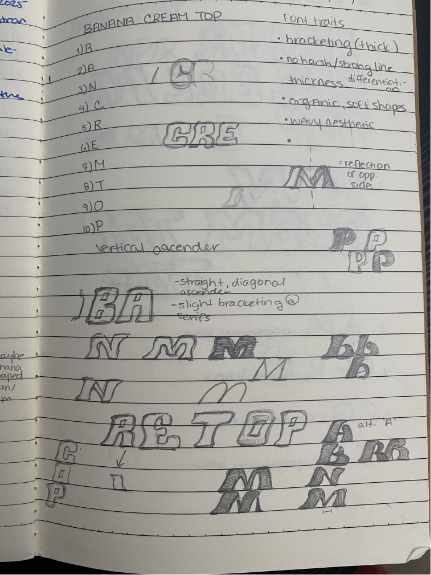 2025
the
BANANA CREAM TOP
1) B
2) A
3) N
4) C
5) R
6) E
7) M
8) T
9) O
10) P
vertical ascender
Font traits
• bracketing (thick)
• no harsh/strong line
thickness differentiati-
on
• organic, soft shapes
• wavy aesthetic
•
CR
CRE
M
= reflection
of opp.
side
P P
P P
BA
-straight, diagonal
ascender
-slight bracketing @
serifs
N M M
M
N
RE TOP
A alt. "A"
C
O
P
n
M
M
N
M